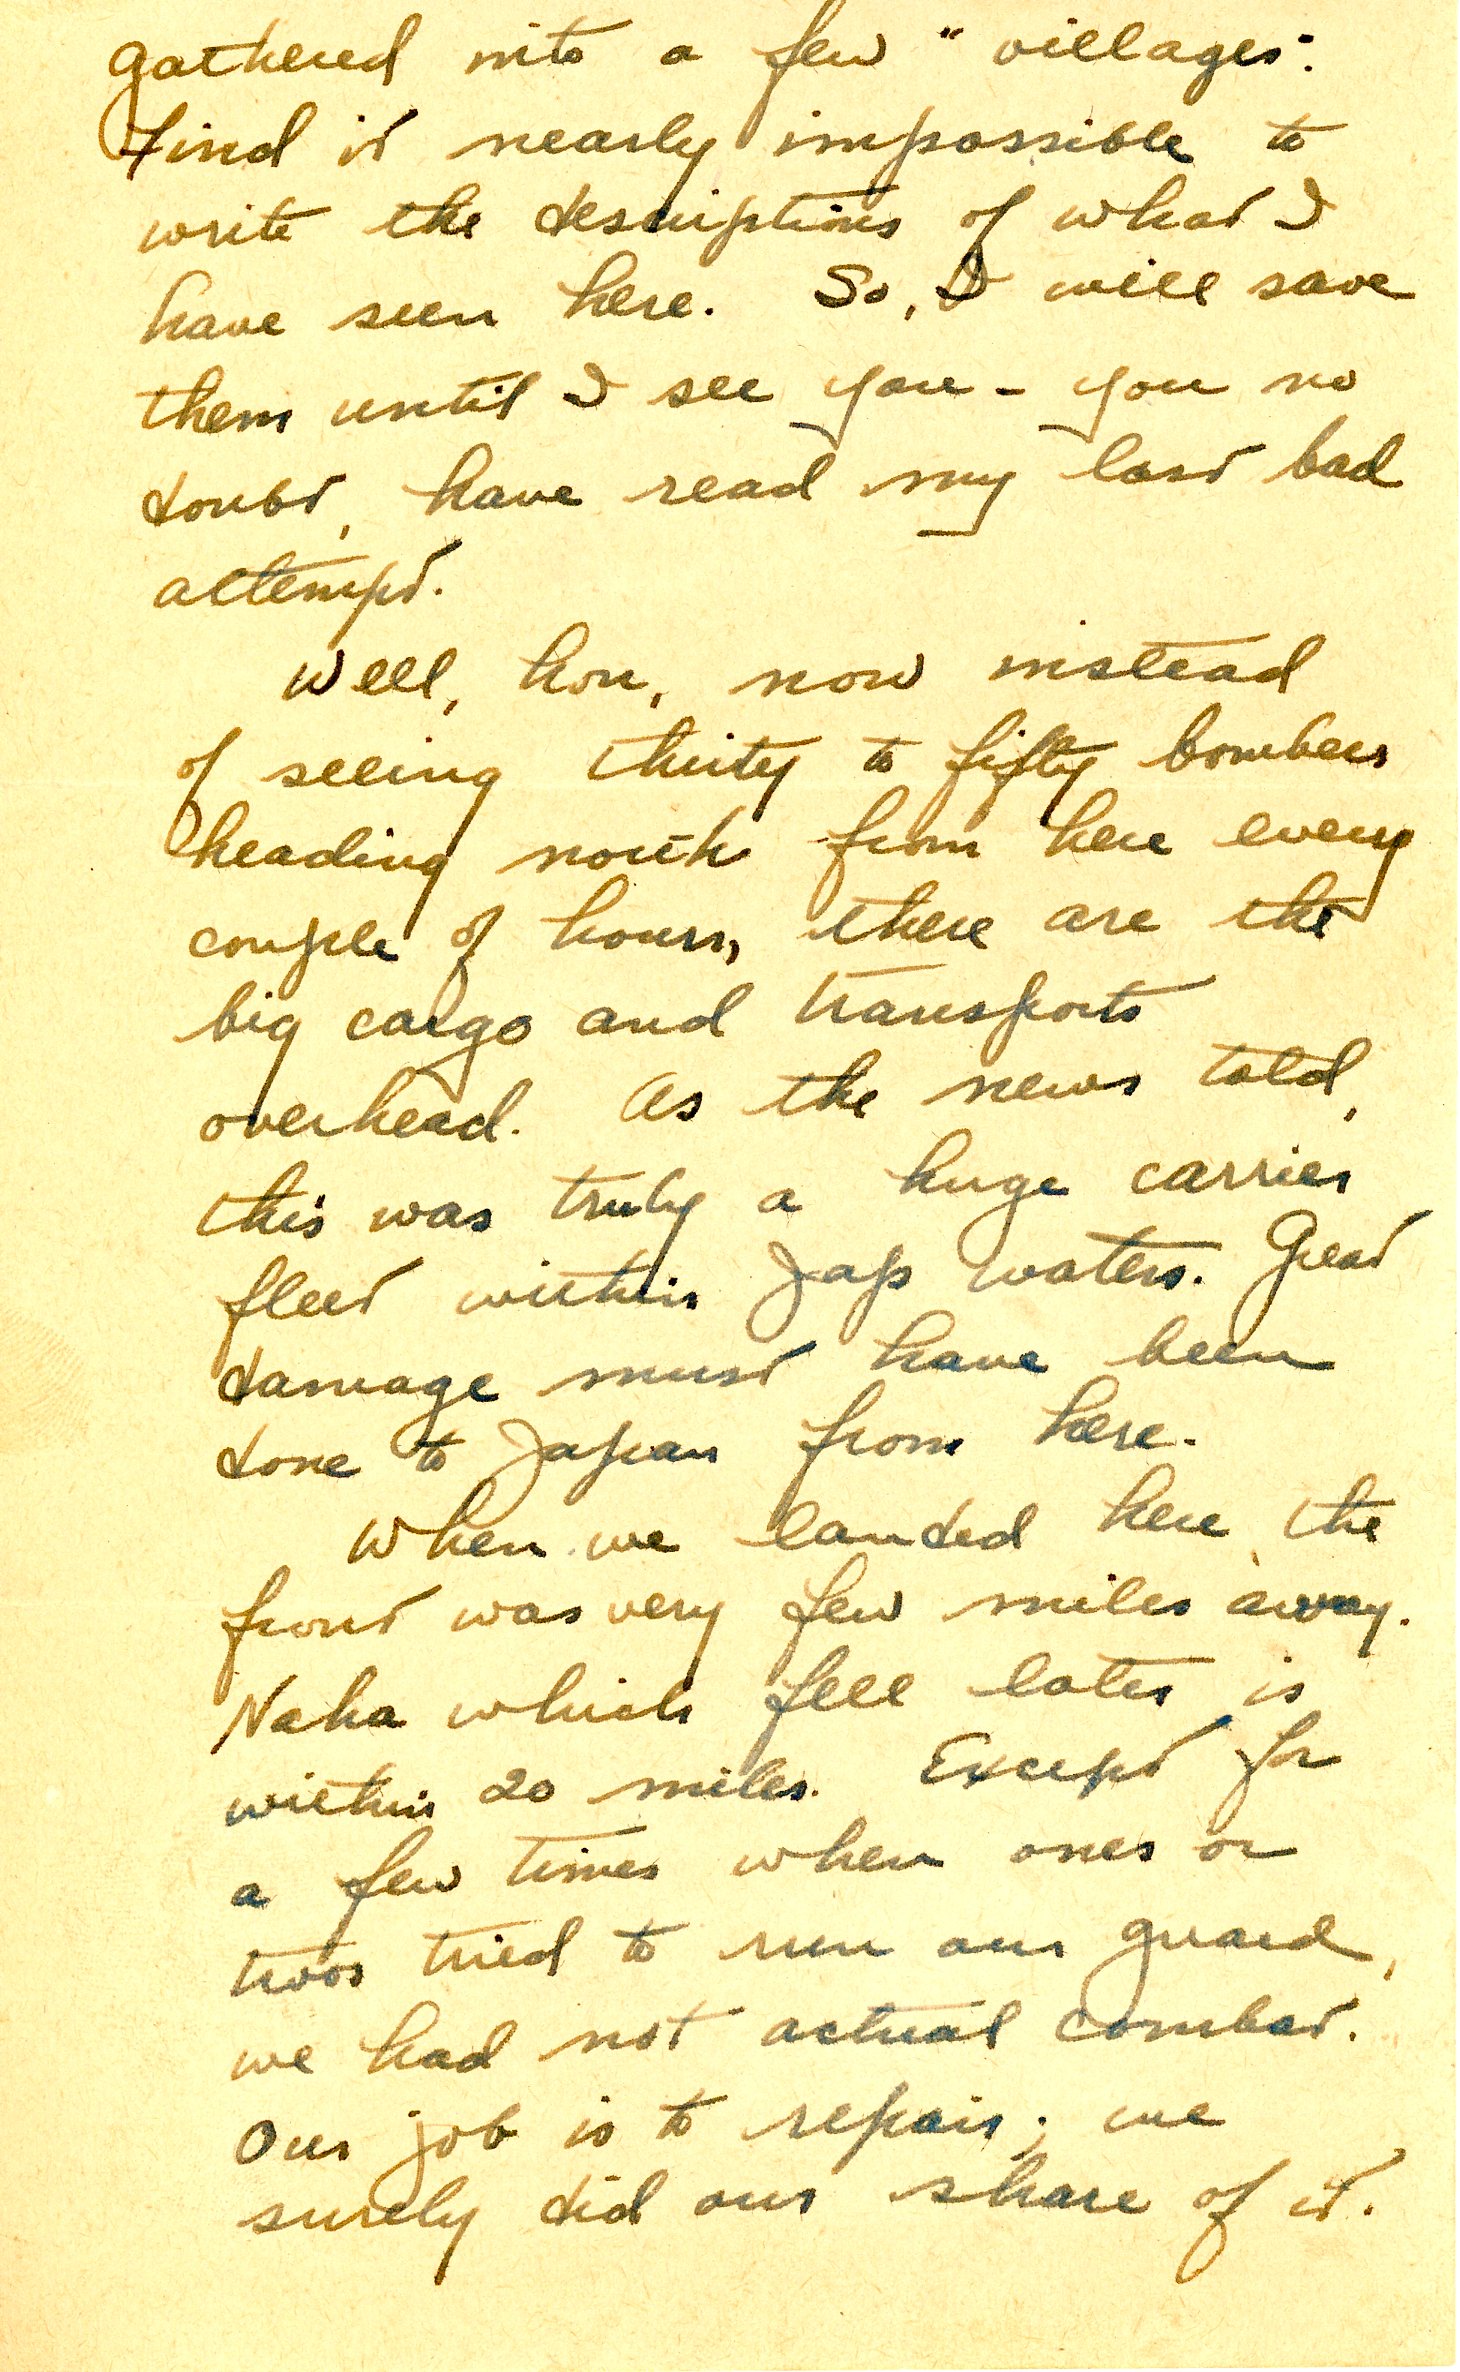 gathered into a few "villages".
Find it nearly impossible to
write the descriptions of what I
have seen here. So, I will save
them until I see you - you no
doubt, have read my last bad
attempt.
Well, hon, now instead
of seeing thirty to fifty bombers
heading north from here every
couple of hours, there are the
big cargo and transports
overhead. As the news told,
this was truly a huge carrier
fleet within Jap waters. Great
damage must have been
done to Japan from here.
When we landed here, the
front was very few miles away.
Naha which fell later is
within 20 miles. Except for
a few times when ones or
twos tried to run our guard,
we had not actual combat.
Our job is to repair; we
surely did our share of it.